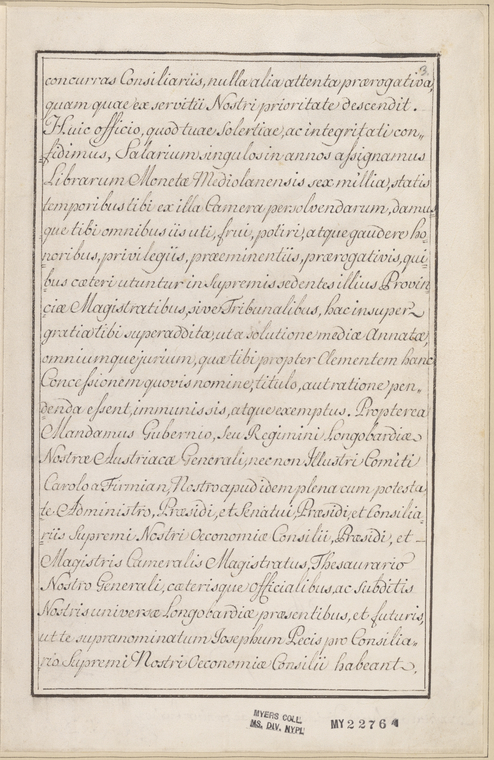 3.
concurras Consiliariis, nulla alia attenta prærogativa,
quam quae ex servitii Nostri prioritate descendit.
Huic officio, quod tuae Solertiae, ac integritati con„
fidimus, Salarium singulos in annos assignamus
Librarum Monetæ Mediolanensis sex millia, statis
temporibus tibi ex illa Camera persolvendarum, damus
que tibi omnibus iis uti, frui, potiri, atque gaudere ho„
noribus, privilegiis, praeeminentiis, prærogativis, qui„
bus cæteri utuntur in Supremis sedentes illius Provin„
ciæ Magistratibus, sive Tribunalibus, hac insuper
gratia tibi superaddita, ut a solutione mediæ Annatæ,
omniumque jurium, quæ tibi propter Clementem hanc
Concessionem quovis nomine, titulo, aut ratione pen„
denda essent, immunis sis, atque exemptus. Propterea
Mandamus Gubernio, seu Regimini Longobardiæ
Nostræ Austriacæ Generali, nec non Illustri Comiti
Carolo a Firmian, Nostro apud idem plena cum potesta„
te Administro, Præsidi, et Senatui, Præsidi, et Consilia„
riis Supremi Nostri Oeconomiæ Consilii, Præsidi, et
Magistris Cameralis Magistratus, Thesaurario
Nostro Generali, cæterisque Officialibus, ac Subditis
Nostris universæ Longobardiæ præsentibus, et futuris,
ut te supranominatum Josephum Pecis pro Consilia„
rio Supremi Nostri Oeconomiæ Consilii habeant,
MYERS COLL.
MS. DIV. NYPL
MY 2276